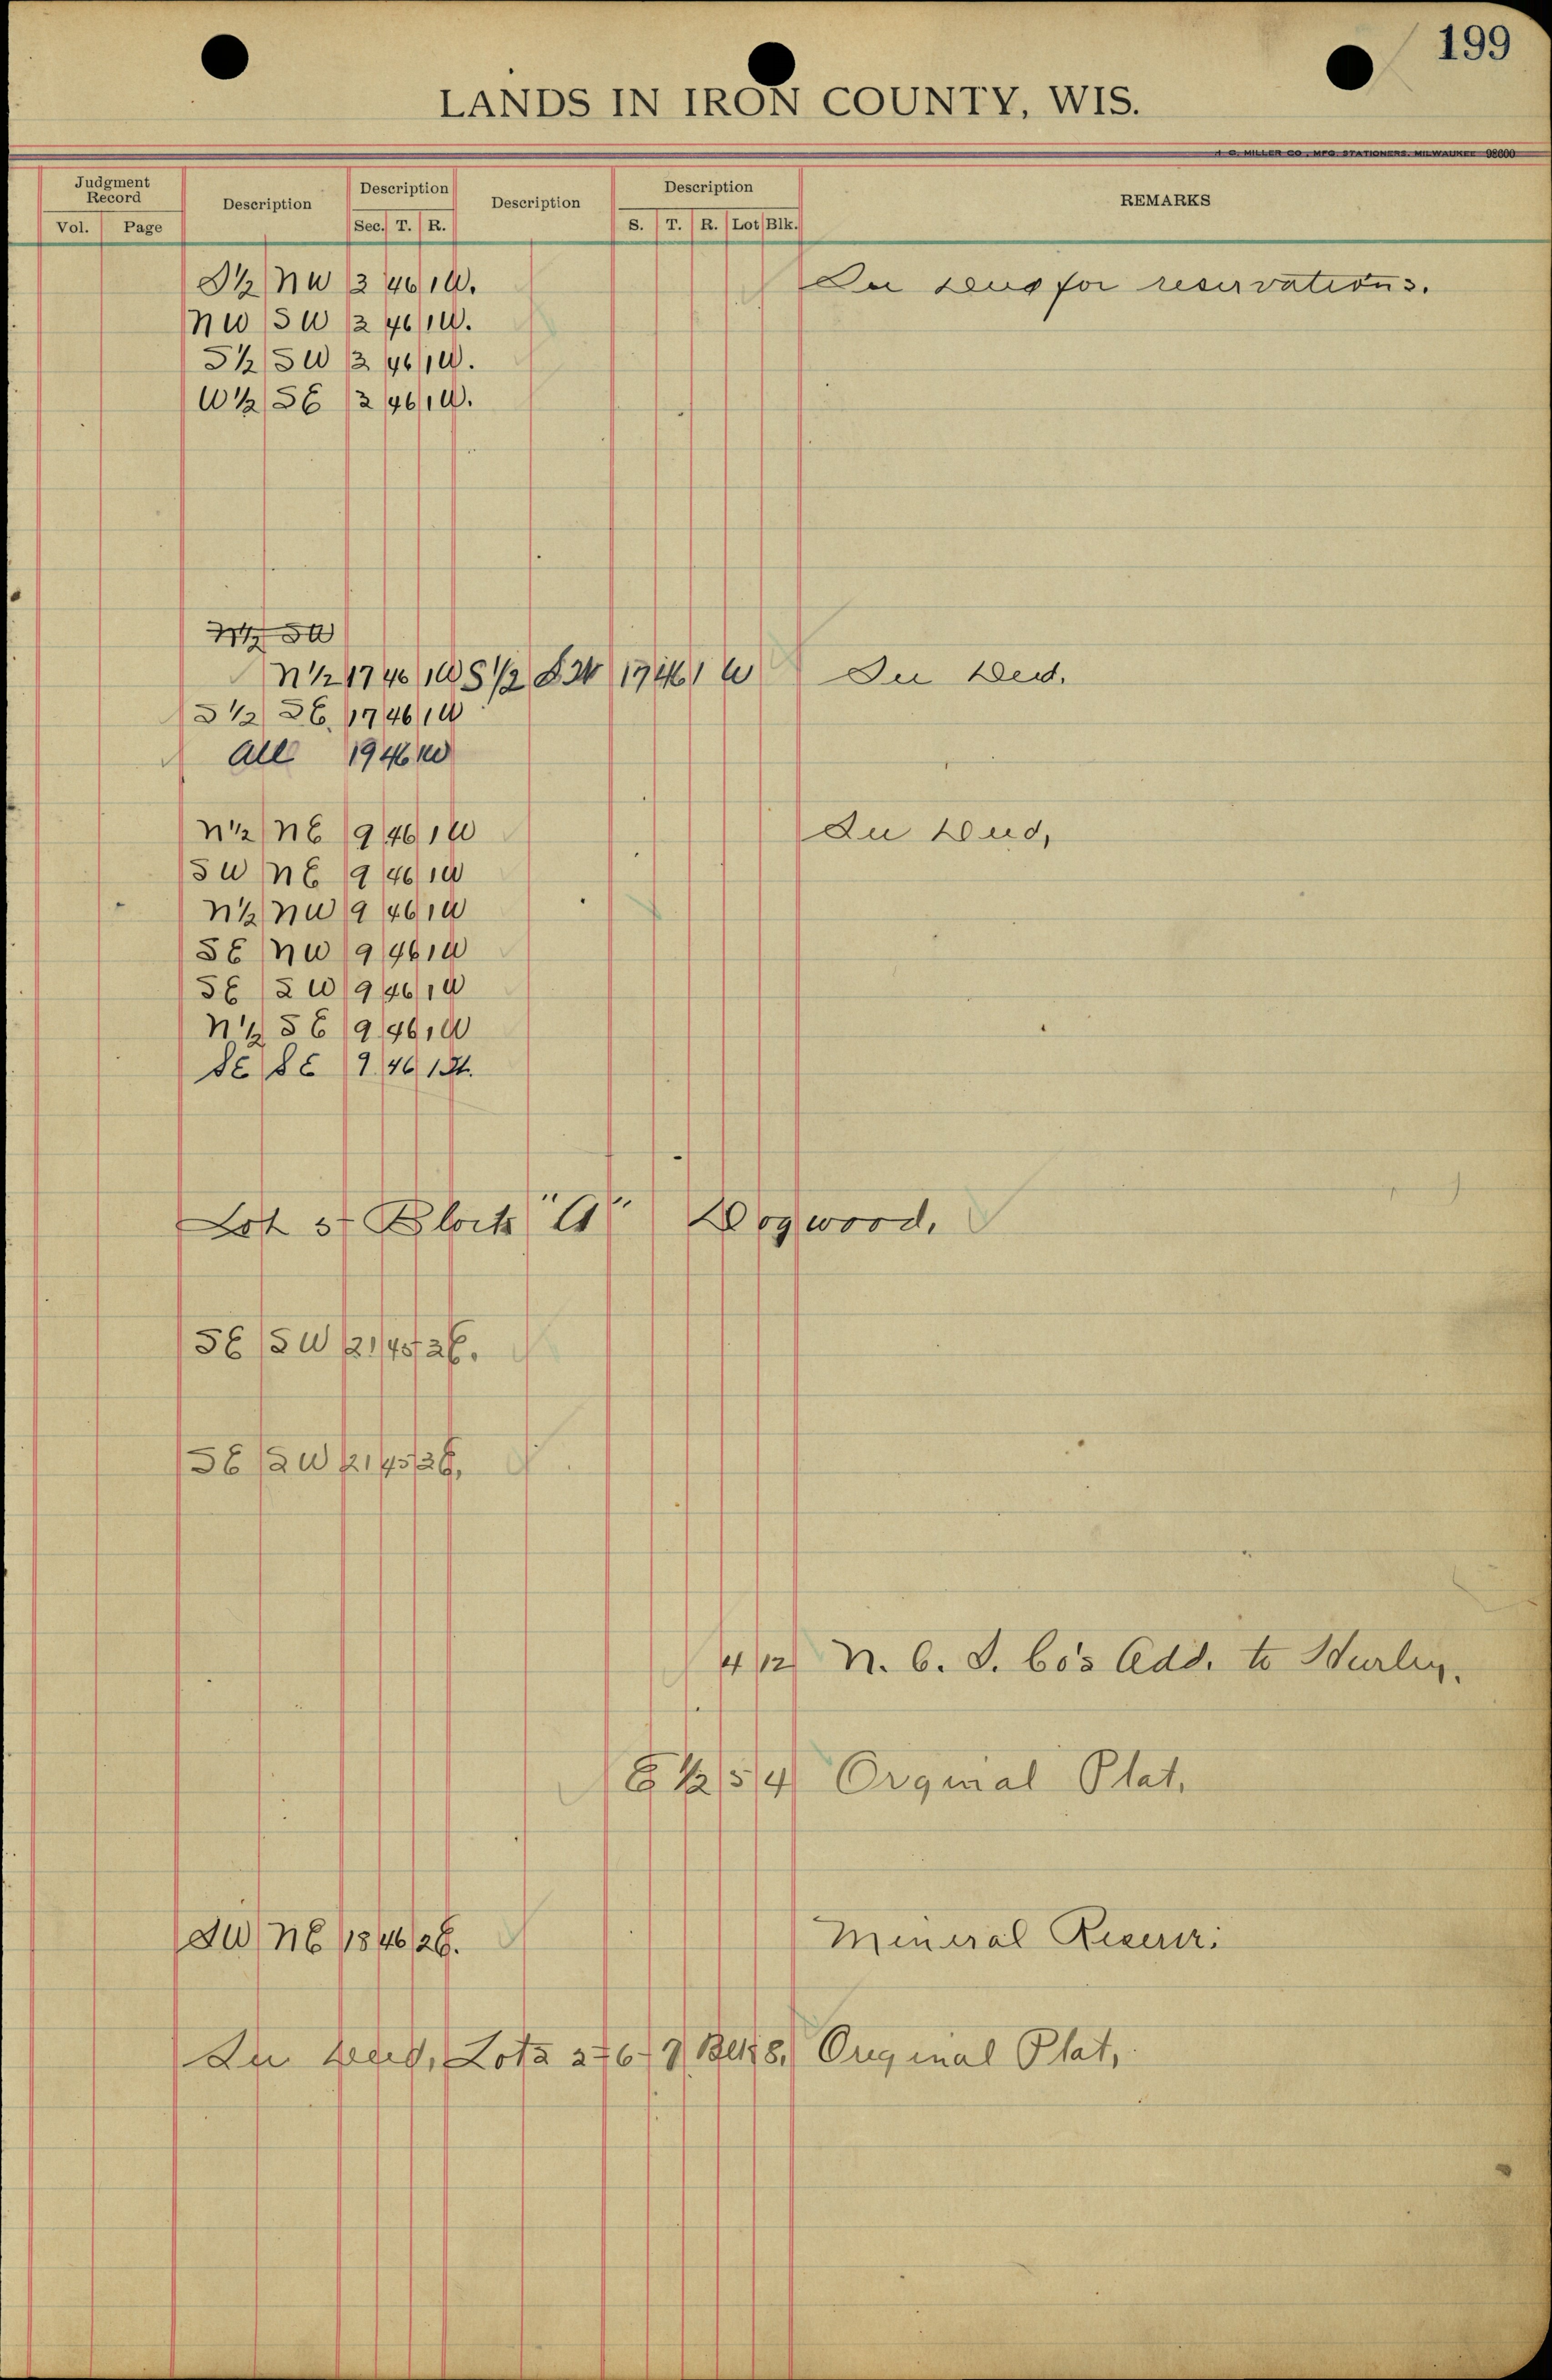 199
LANDS IN IRON COUNTY, WIS.
MILLER CO., MFG. STATIONERS, MILWAUKEE 98600
Judgment Record Description Description Description Description REMARKS
Vol. Page Sec. T. R. S. T. R. Lot Blk.
S½ NW 2 46 1W. See Deed for reservations.
NW SW 2 46 1W.
S½ SW 2 46 1W.
W½ SE 2 46 1W.
N½ SW
N½ 17 46 1W S½ SW 17 46 1 W See Deed.
S½ SE. 17 46 1W
All 19 46 1W
N½ NE 9 46 1W See Deed,
SW NE 9 46 1W
N½ NW 9 46 1W
SE NW 9 46 1W
SE SW 9 46 1W
N½ SE 9 46 1W
SE SE 9 46 1W.
Lot 5 Block "A" Dogwood.
SE SW 21 45 2E.
SE SW 21 45 2E,
4 12 N. C. I. Co's Add. to Hurley.
E ½ 5 4 Orginal Plat.
SW NE 18 46 2E. Mineral Reserv:
See Deed, Lots 6-7 Blk 8. Original Plat,